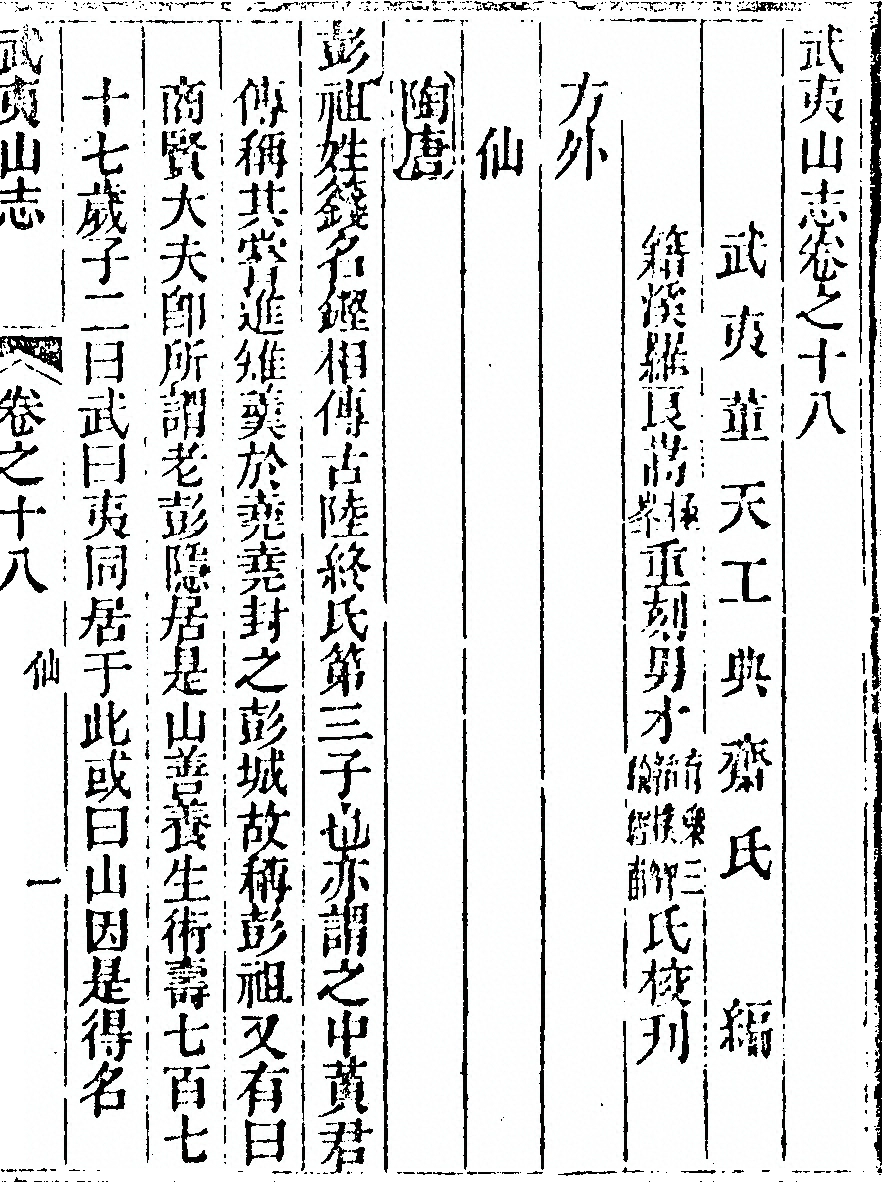 武夷山志卷之十八
武夷董天工典齋氏 編
籍溪羅良嵩重刻男才氏校刊
方外
仙
陶唐
彭祖姓錢名鏗相傳古陸終氏第三子也亦謂之中黃君
傳稱其嘗進雉羹於堯堯封之彭城故稱彭祖又有曰
商賢大夫卽所謂老彭隱居是山善養生術壽七百七
十七歲子二曰武曰夷同居于此或曰山因是得名
武夷山志 卷之十八 仙 一